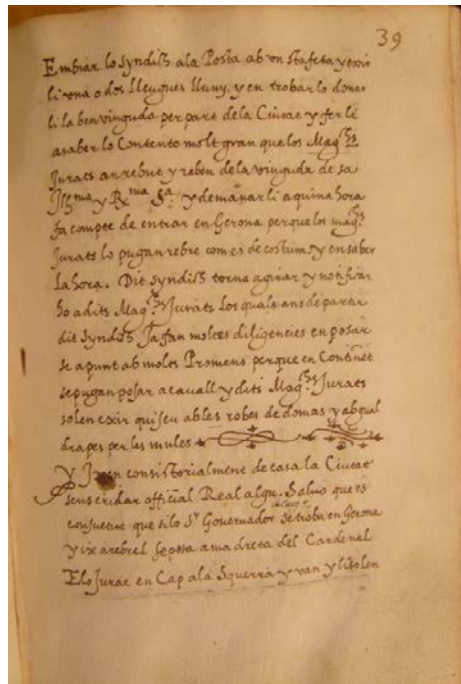 39
Embiar lo syndich ala Posta ab vn stafeta y exir
li vna o dos lleugues lluny, y en trobarlo donar
li la benvinguda per part dela Ciutat y fer li
asaber lo Contento molt gran que los Mag.chs
Jurats an rebut y reben dela vinguda de sa
Ill.ma y R.ma S.a y demanarli aquina hora
fa compte de entrar en Gerona perque los mag.chs
Jurats lo pugan rebre com es de costum, y en saber
la hora. Dit syndich torna agirar y notificar
ho a dits Mag.chs Jurats los quals ans de partir
dit syndich Ja fan moltes diligencies en posar
se apunt ab molts Promens perque en Continet
se pugan posar a cavall y dits Mag.chs Jurats
solen exir quiseu ab les robes de domas y ab gual
drapes per les mules
Y Ixen consistorialment de casa la Ciutat
sens cridar official Real algu. Salvo que es
consuetut que si lo S.r Governador se troba en Gerona
y ix arebrel se posa a ma dreta del Cardenal
E lo Jurat en Cap ala Squerra y van y li solen